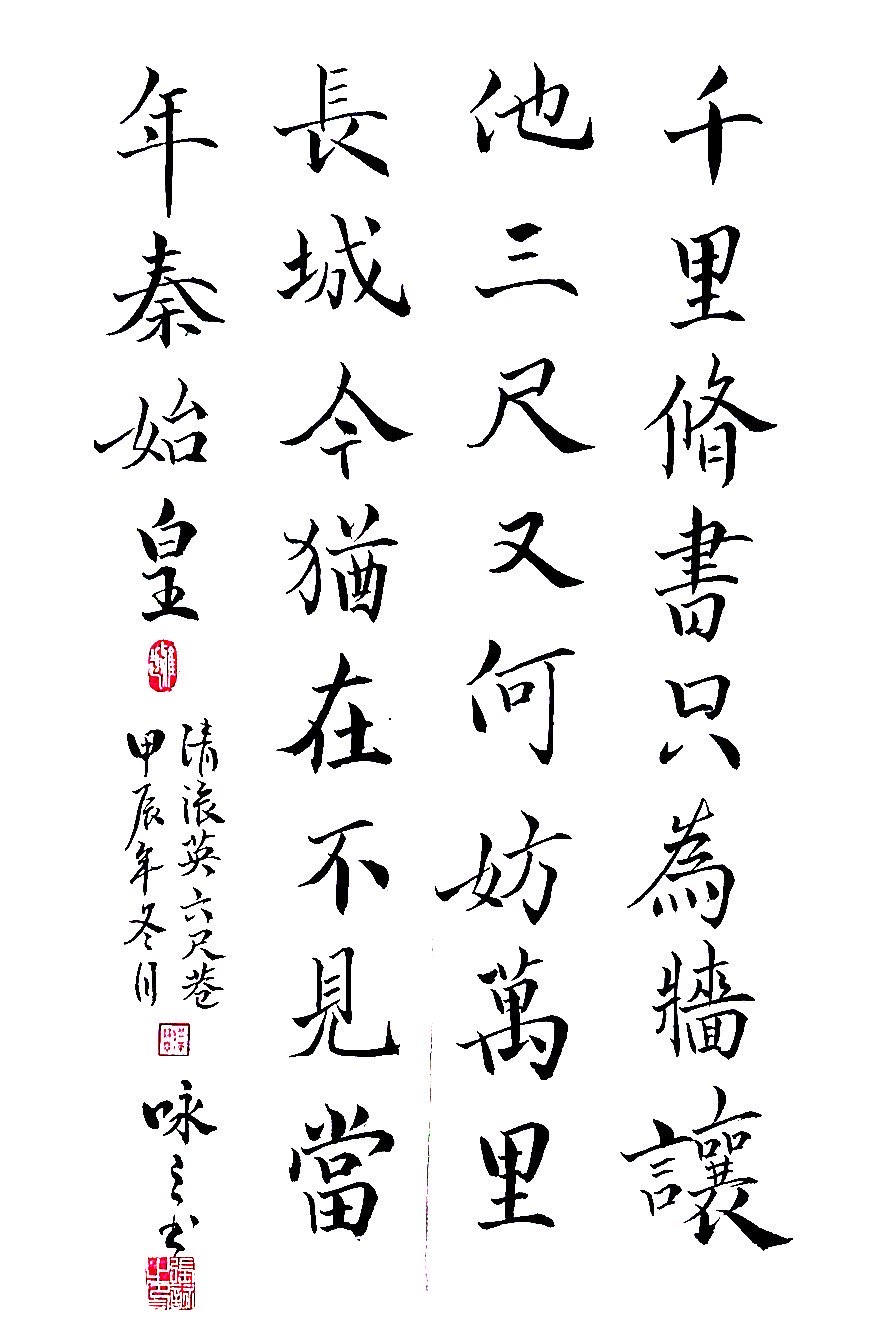 千里脩書只為牆讓
他三尺又何妨萬里
長城今猶在不見當
年秦始皇
清張英六尺巷
甲辰年冬月
咏之书